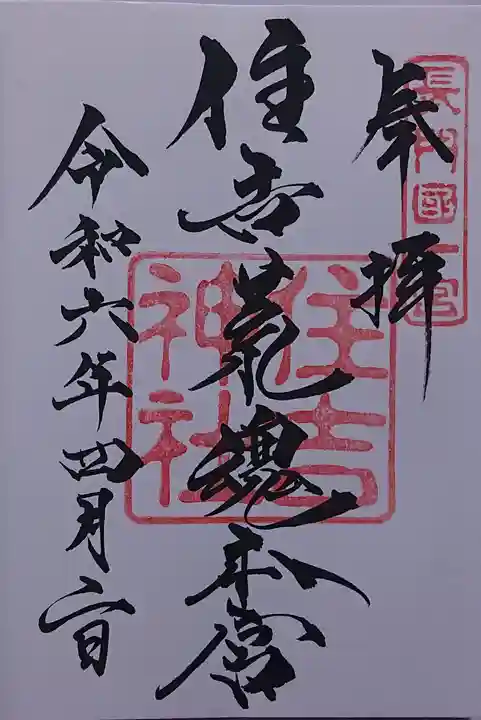 奉拝
長門國一宮
住吉荒魂本宮
住吉神社
令和六年四月六日